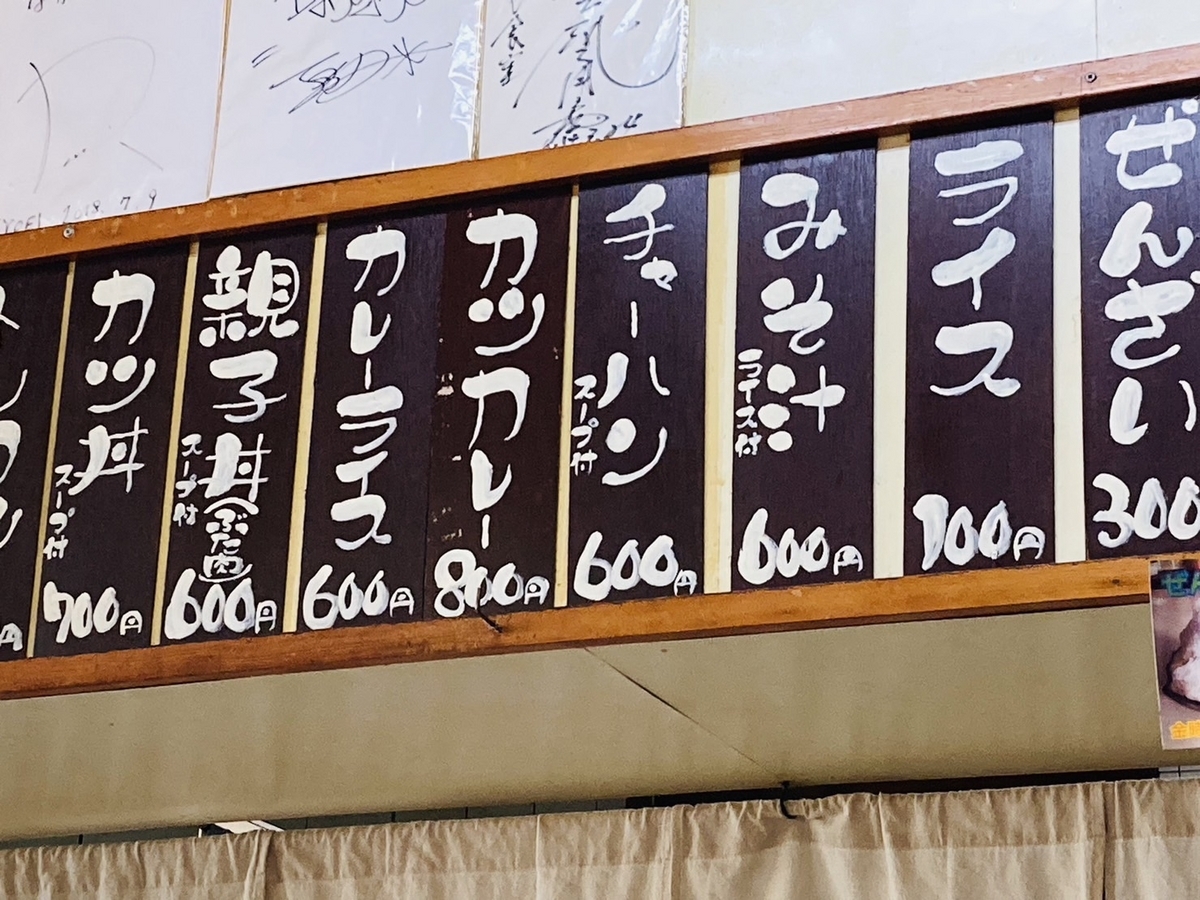 2018.7.9
ぜんざい 300
ライス 100円
みそ汁 ライス付 600円
チャーハン スープ付 600円
カツカレー 800円
カレーライス 600円
親子丼(ぶた肉) スープ付 600円
カツ丼 スープ付 700円